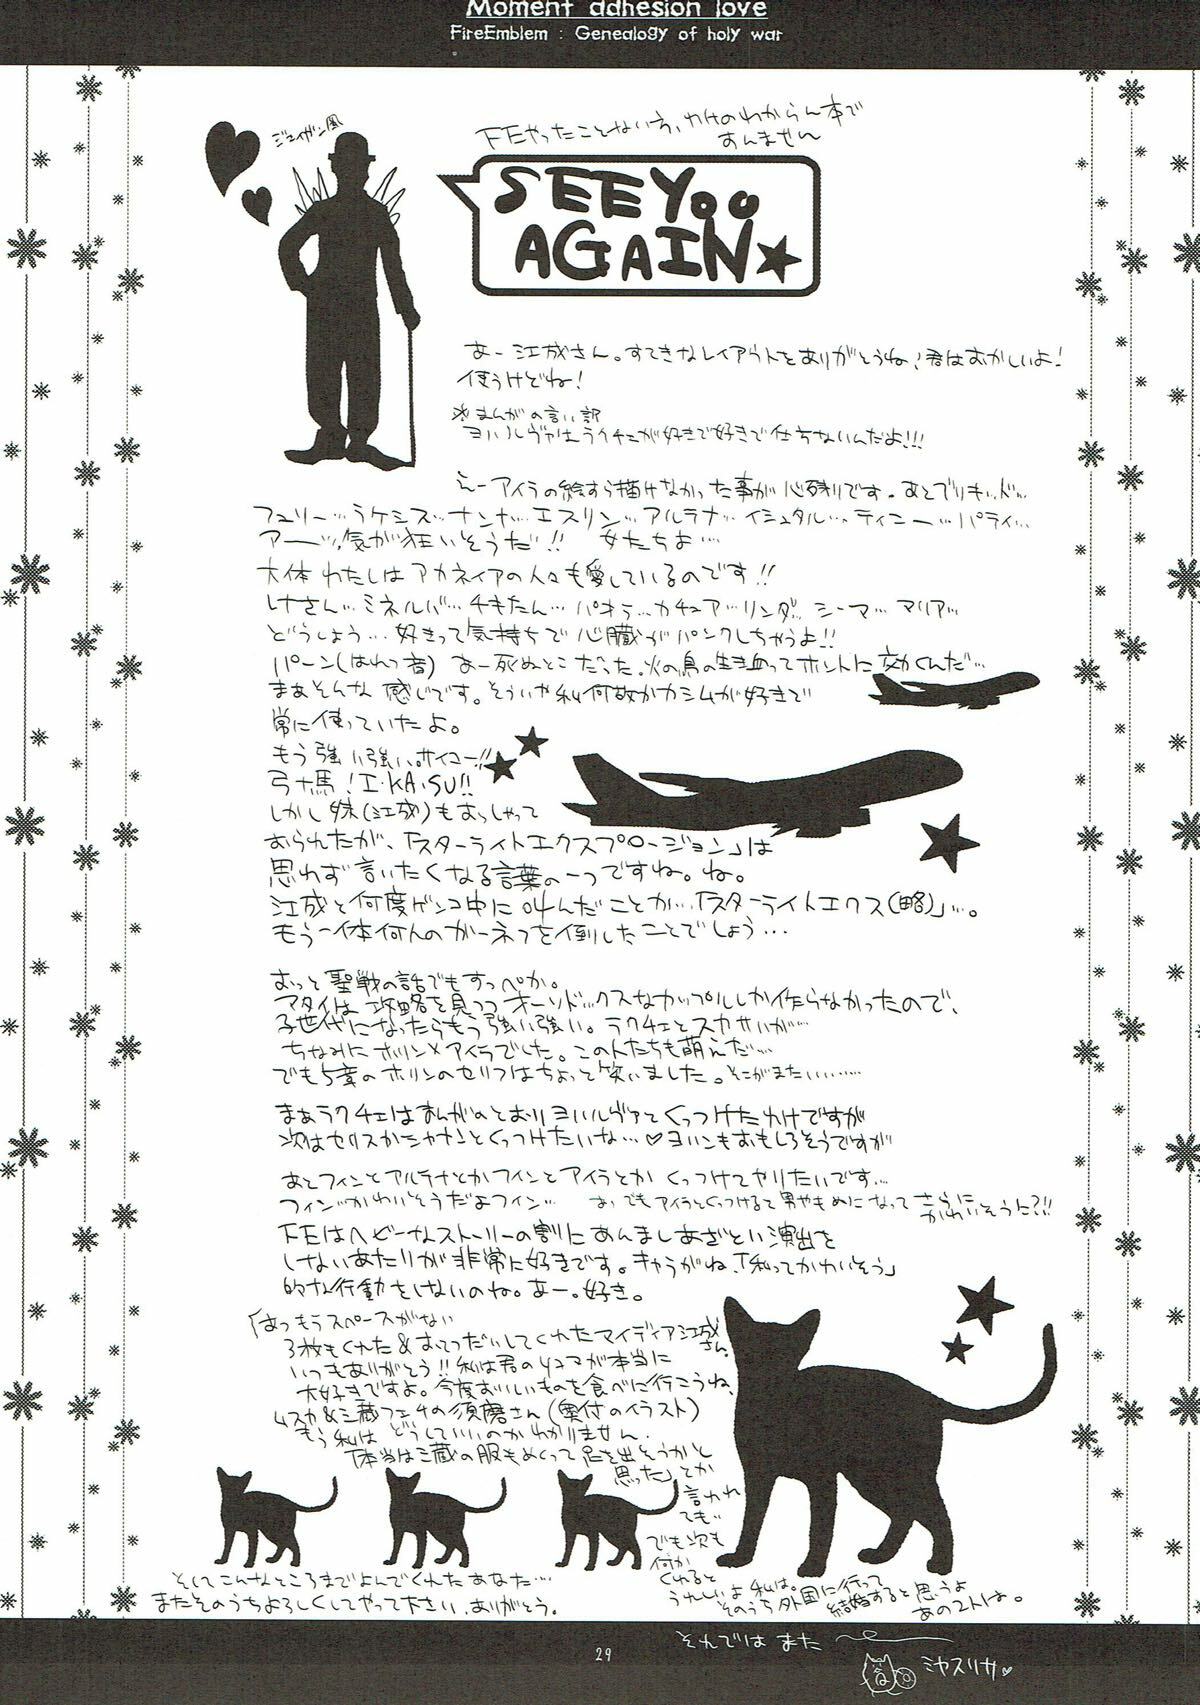 Moment adhesion love
FireEmblem : Genealogy of holy war
ジェイガン風
FEやったことない方、わけのわからん本で
あんません
SEE YOU
AGAIN
あー江成さん。すてきなレイアウトをありがとうね!君はおかしいよ!
使うけどね!
*まんがの言い訳
ヨハルヴァはラクチェが好きで好きで仕方ないんだよ!!!
えーアイラの絵すら描けなかった事が心残りです。あとブリギッド…
フュリー…ラケシス…ナンナ…エスリン…アルテナ…イシュタル…ティニー…パティ…
アーーッ気が狂いそうだ!! 女たちよ…
大体わたしはアカネイアの人々も愛しているのです!!
レナさん…ミネルバ…チキたん…パオラ…カチュア…リンダ…シーマ…マリア…
どうしよう…好きって気持ちで心臓がパンクしちゃうよ!!
パーン(はれつ音) あー死ぬとこだった。火の鳥の生き血ってホントに効くんだ…
まあそんな感じです。そういや私何故かカシムが好きで
常に使っていたよ。
もう強い強い。サイコー!!
弓+馬!I・KA・SU!!
しかし妹(江成)もおっしゃって
おられたが、「スターライトエクスプロージョン」は
思わず言いたくなる言葉の一つですね。ね。
江成と何度ゲンコ中に叫んだことか…「スターライトエクス(略)」…。
もう一体何人のガーネフを倒したことでしょう…
おっと聖戦の話でもすっぺか。
アタイは攻略を見つつオーソドックスなカップルしか作らなかったので、
子世代になったらもう強い強い。ラクチェとスカサハが…
ちなみにホリン×アイラでした。この人たちも萌えだ…
でも5章のホリンのセリフはちょっと笑いました。そこがまたいい………
まあラクチェはまんがのとおりヨハルヴァとくっつけたわけですが
次はセリスかシャナンとくっつけたいな…♡ヨハンもおもしろそうですが
あとフィンとアルテナとかフィンとアイラとかくっつけてやりたいです…
フィン…かわいそうだよフィン… あっでもアイラとくっつけると男やもめになってさらに
かわいそうに?!!
FEはヘビーなストーリーの割にあんましあざとい演出を
しないあたりが非常に好きです。キャラがね、「私ってかわいそう」
的な行動をしないのね。あー。好き。
はっもうスペースがない
3枚もくれた&おてつだいしてくれたマイディア江成
さん。
いつもありがとう!!私は君の4コマが本当に
大好きですよ。今度おいしいものを食べに行こうね。
ムスカ&三蔵フェチの須磨さん(奥付のイラスト)
もう私はどうしていいのかわかりません。
「本当は三蔵の服もめくって足を出そうかと
思った」とか
言われ
ても…
でも次も
何か
くれると
うれしいよ私は。
そのうち外国に行って
結婚すると思うよ
あの2人は。
そしてこんなところまでよんでくれたあなた…
またそのうちよろしくしてやって下さい。ありがとう。
それではまた
29
ミヤスリサ